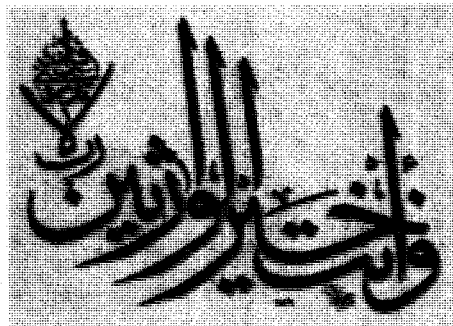 رب
وأنت خير الوارثين